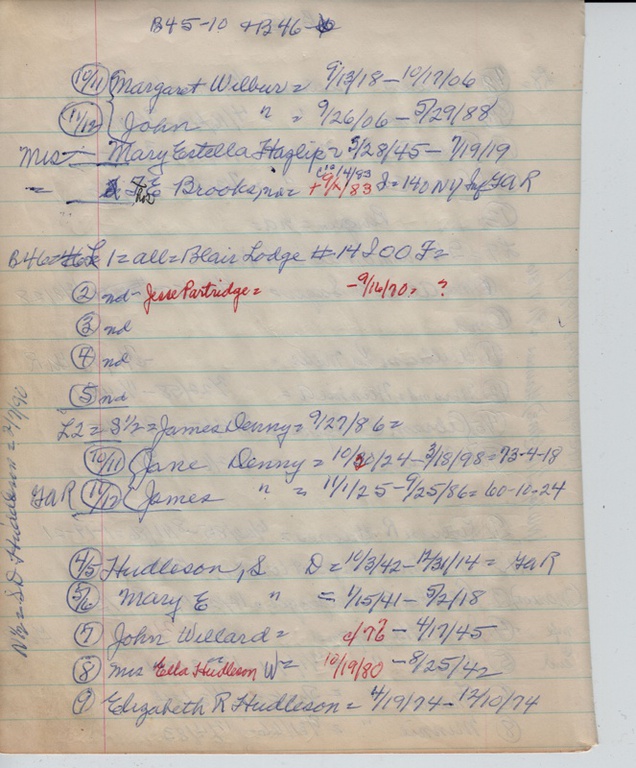 B45-10 + B46-
10/11 Margaret Wilbur = 9/13/18 - 10/17/06
11/12 John " = 9/26/06 - 5/29/88
Mis - Mary Estella Haslip = 5/28/45 - 7/19/19
= Brooks, = c 12/4/83
+ 9/ /83 D = 140 NY Inf GAR
B46 = L 1 = all = Blair Lodge # 14 IOOF =
② nd - Jesse Partridge = - 9/16/70 = ?
③ nd
④ nd
⑤ nd
L2 = S 1/2 = James Denny = 9/27/86 =
10/11 Jane Denny = 10/30/24 - 3/18/98 = 73-4-18
GAR 11/12 James " = 11/1/25 - 9/25/86 = 60-10-24
N 1/2 = S D Huddleson = 2/7/90
4/5 Hudleson, S D = 10/3/42 - 12/31/14 = GAR
5/6 Mary E " = 1/15/41 - 5/2/18
⑦ John Willard = c/76 - 4/17/45
⑧ Mis Ella Hudleson W = 10/19/80 - 8/25/42
⑨ Elizabeth R Hudleson = 4/19/74 - 12/10/74